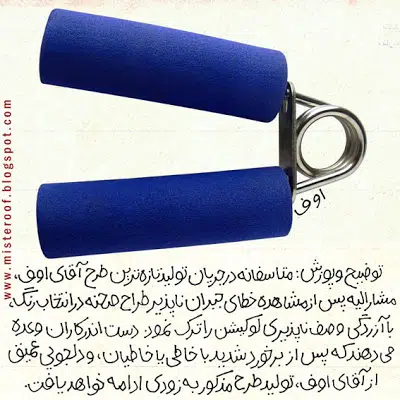 www.misteroof.blogspot.com
اوف
توضیح و پوزش: متاسفانه در جریان تولید تازه‌ترین طرح آقای اوف،
مشارالیه پس از مشاهده خطای جبران ناپذیر طراح صحنه در انتخاب رنگ،
با آزردگی وصف ناپذیری لوکیشن را ترک نمود. دست اندرکاران وعده
می دهند که پس از برخورد شدید با خاطی یا خاطیان، و دلجویی عمیق
از آقای اوف، تولید طرح مذکور به زودی ادامه خواهد یافت.